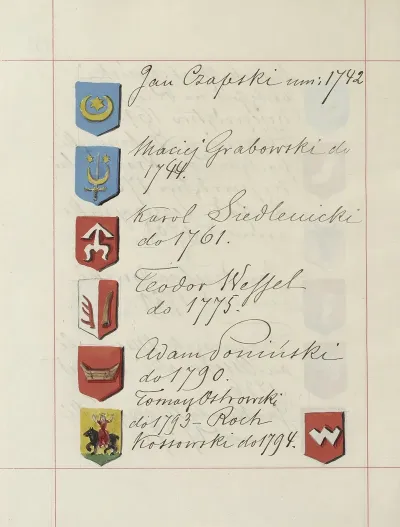 Jan Czapski um: 1742
Maciej Grabowski do
1744.
Karol Siedlenicki
do 1761.
Teodor Wessel
do 1775.
Adam Poniński
do 1790.
Tomasz Ostrowski
do 1793 – Roch
Kossowski do 1794.